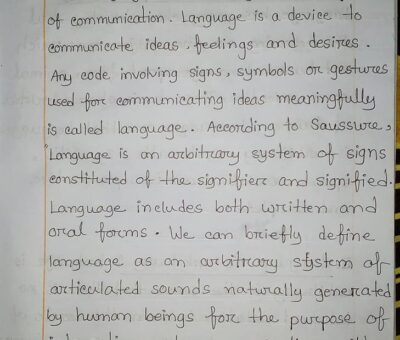 of communication. Language is a device to
communicate ideas, feelings and desires.
Any code involving signs, symbols or gestures
used for communicating ideas meaningfully
is called language. According to Saussure,
"Language is an arbitrary system of signs
constituted of the signifier and signified.
Language includes both written and
oral forms. We can briefly define
language as an arbitrary system of
articulated sounds naturally generated
by human beings for the purpose of